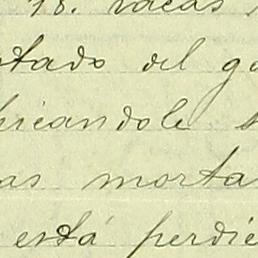 18. vacas
tado del ga
icandole s
as morta
está perdie